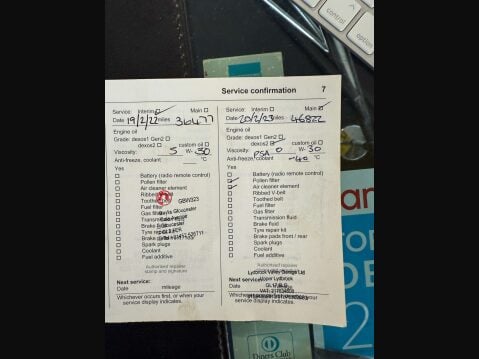 control
option
Service confirmation 7
Service: Interim Main
Date 19/2/22 miles 36477
Engine oil
Grade: dexos1 Gen2
dexos2 custom oil
Viscosity: 5 W- 30
Anti-freeze, coolant °C
Yes
Battery (radio remote control)
Pollen filter
Air cleaner element
Ribbed
Toothed GBW323
Fuel filter
Gas filter
Brake fluid
Tyre repair
Spark plugs
Coolant
Fuel additive
Authorised repairer
stamp and signature
Next service:
Date mileage
Whichever occurs first, or when your
service display indicates.
Service: Interim Main
Date 20/2/23 miles 46822
Engine oil
Grade: dexos1 Gen2
dexos2 custom oil
Viscosity: PSA 0 W- 30
Anti-freeze, coolant -40 °C
Yes
Battery (radio remote control)
Pollen filter
Air cleaner element
Ribbed V-belt
Toothed belt
Fuel filter
Gas filter
Transmission fluid
Brake fluid
Tyre repair kit
Brake pads front / rear
Spark plugs
Coolant
Fuel additive
Authorised repairer
Next service:
Date
service display indicates.
2
Diners Club